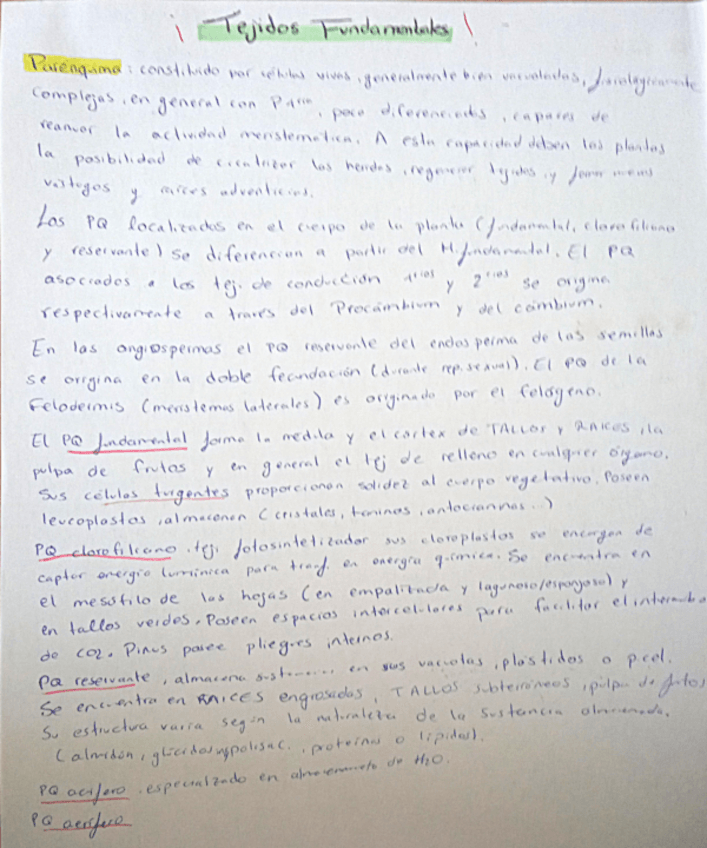 ¡ Tejidos Fundamentales !
Parénquima: constituido por células vivas, generalmente bien vacuoladas, fisiológicamente
complejas, en general con P.Aria, poco diferenciadas, capaces de
reanuar la actividad meristemática. A esta capacidad deben las plantas
la posibilidad de cicatrizar las heridas, regenerar tejidos, y formar nuevos
vástagos y raíces adventicias.
Los PQ localizados en el cuerpo de la planta (fundamental, clorofiliano
y reservante) se diferencian a partir del M.fundamental. El PQ
asociados a los tej. de conducción 1rios y 2rios se origina
respectivamente a través del Procámbium y del cambium.
En las angiospermas el PQ reservante del endosperma de las semillas
se origina en la doble fecundación (durante rep.sexual). El PQ de la
Felodermis (meristemas laterales) es originado por el felógeno.
El PQ fundamental forma la médula y el cortex de TALLOS y RAICES, la
pulpa de frutos y en general el tej de relleno en cualquier órgano.
Sus células turgentes proporcionan solidez al cuerpo vegetativo. Poseen
leucoplastos, almacenan (cristales, taninos, antocianinas...)
PQ clorofiliano. tej. fotosintetizador sus cloroplastos se encargan de
captar energía lumínica para transf. en energía química. Se encuentra en
el mesófilo de las hojas (en empalizada y lagunoso/esponjoso) y
en tallos verdes. Poseen espacios intercelulares para facilitar el intercambio
de CO2. Pinus posee pliegues internos.
PQ reservante, almacena en sus vacuolas, plástidos o p.cel.
Se encuentra en RAICES engrosadas, TALLOS subterráneos, pulpa de frutos
Su estructura varía según la naturaleza de la sustancia almacenada.
(almidón, glúcidos, polisac., proteínas o lípidos).
PQ acífero, especializado en almacenamiento de H2O.
PQ aerífero